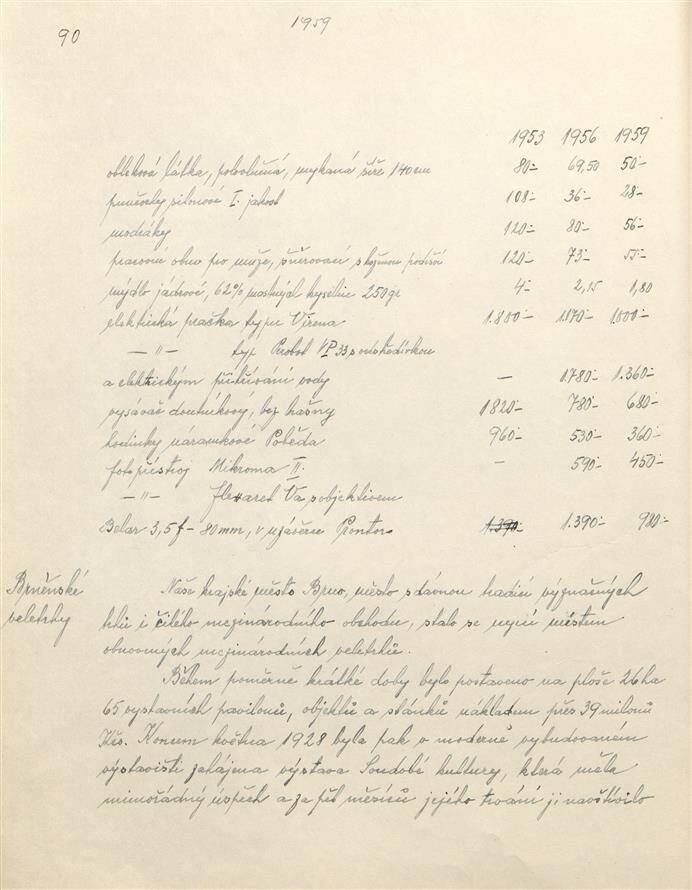 90
1959
1953 1956 1959
obleková látka, polovlněná, mykaná šíře 140 cm 80·- 69,50 50·-
punčochy silonové I. jakost 108·- 36·- 28·-
modráky 120·- 80·- 56·-
pracovní obuv pro muže, šněrovací s koženou podešví 120·- 73·- 55·-
mýdlo jádrové, 62% mastných kyselin 250 gr 4·- 2,15 1,80
elektrická pračka typu Virena 1.800·- 1170·- 1000·-
— " — typ Perobot VP 33 s odstředivkou
a elektrickým přitápění vody — 1.780·- 1.360·-
vysávač doutníkový, bez hašny 1820·- 780·- 680·-
hodinky náramkové Poběda 960·- 530·- 360·-
fotopřístroj Mikroma II. — 590·- 450·-
— " — Flexaret Va s objektivem
Belar 3,5 f - 80 mm, v uzávěrce Prontor 1.390·- 1.390·- 980·-
Brněnské
veletrhy
Naše krajské město Brno, město s dávnou tradicí význačných
trhů i čilého mezinárodního obchodu, stalo se nyní městem
obnovených mezinárodních veletrhů.
Během poměrně krátké doby bylo postaveno na ploše 26 ha
65 výstavních pavilonů, objektů a stánků nákladem přes 39 milonů
Kčs. Koncem května 1928 byla pak v moderně vybudovaném
výstavišti zahájena výstava Soudobé kultury, která měla
mimořádný úspěch a za pět měsíců jejího trvání ji navštívilo